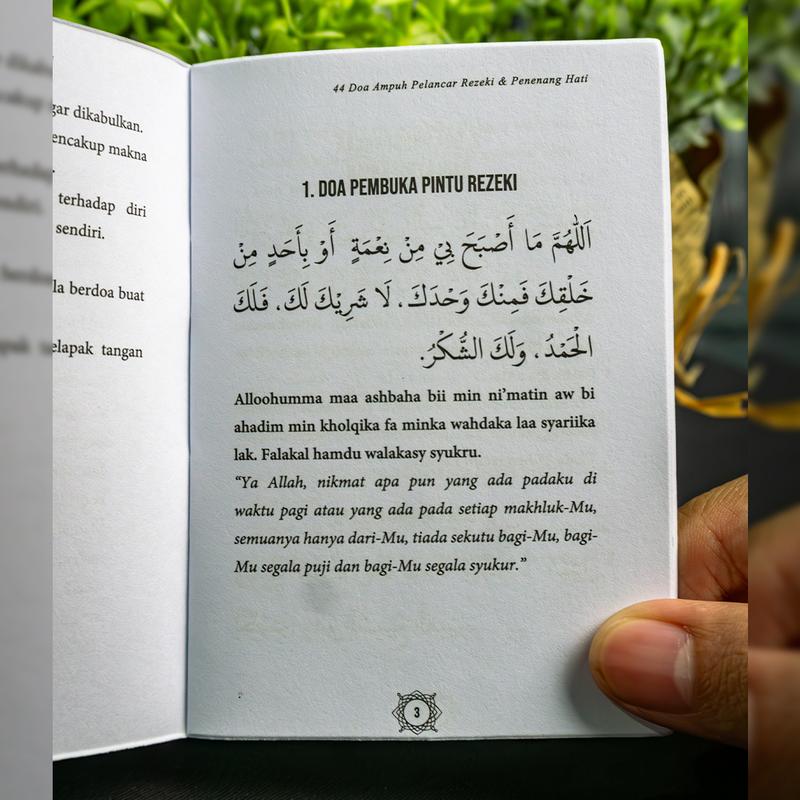 gar dikabulkan.
encakup makna
terhadap diri
sendiri.
la berdoa buat
elapak tangan
44 Doa Ampuh Pelancar Rezeki & Penenang Hati
1. DOA PEMBUKA PINTU REZEKI
اَللّٰهُمَّ مَا أَصْبَحَ بِيْ مِنْ نِعْمَةٍ أَوْ بِأَحَدٍ مِنْ
خَلْقِكَ فَمِنْكَ وَحْدَكَ، لَا شَرِيْكَ لَكَ، فَلَكَ
الْحَمْدُ، وَلَكَ الشُّكْرُ.
Alloohumma maa ashbaha bii min ni’matin aw bi
ahadim min kholqika fa minka wahdaka laa syariika
lak. Falakal hamdu walakasy syukru.
“Ya Allah, nikmat apa pun yang ada padaku di
waktu pagi atau yang ada pada setiap makhluk-Mu,
semuanya hanya dari-Mu, tiada sekutu bagi-Mu, bagi-
Mu segala puji dan bagi-Mu segala syukur.”
3